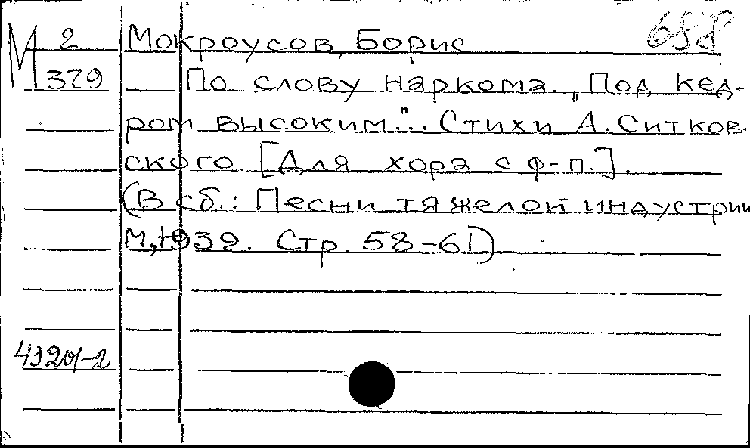 М 2 Мокроусов, Борис 688
379 По слову наркома. „Под кед-
ром высоким". Стихи А. Ситков-
ского [Для хора с ф-п.].
(В сб.: Песни тяжелой индустрии
М., 1939. Стр. 58-61)
43201-2